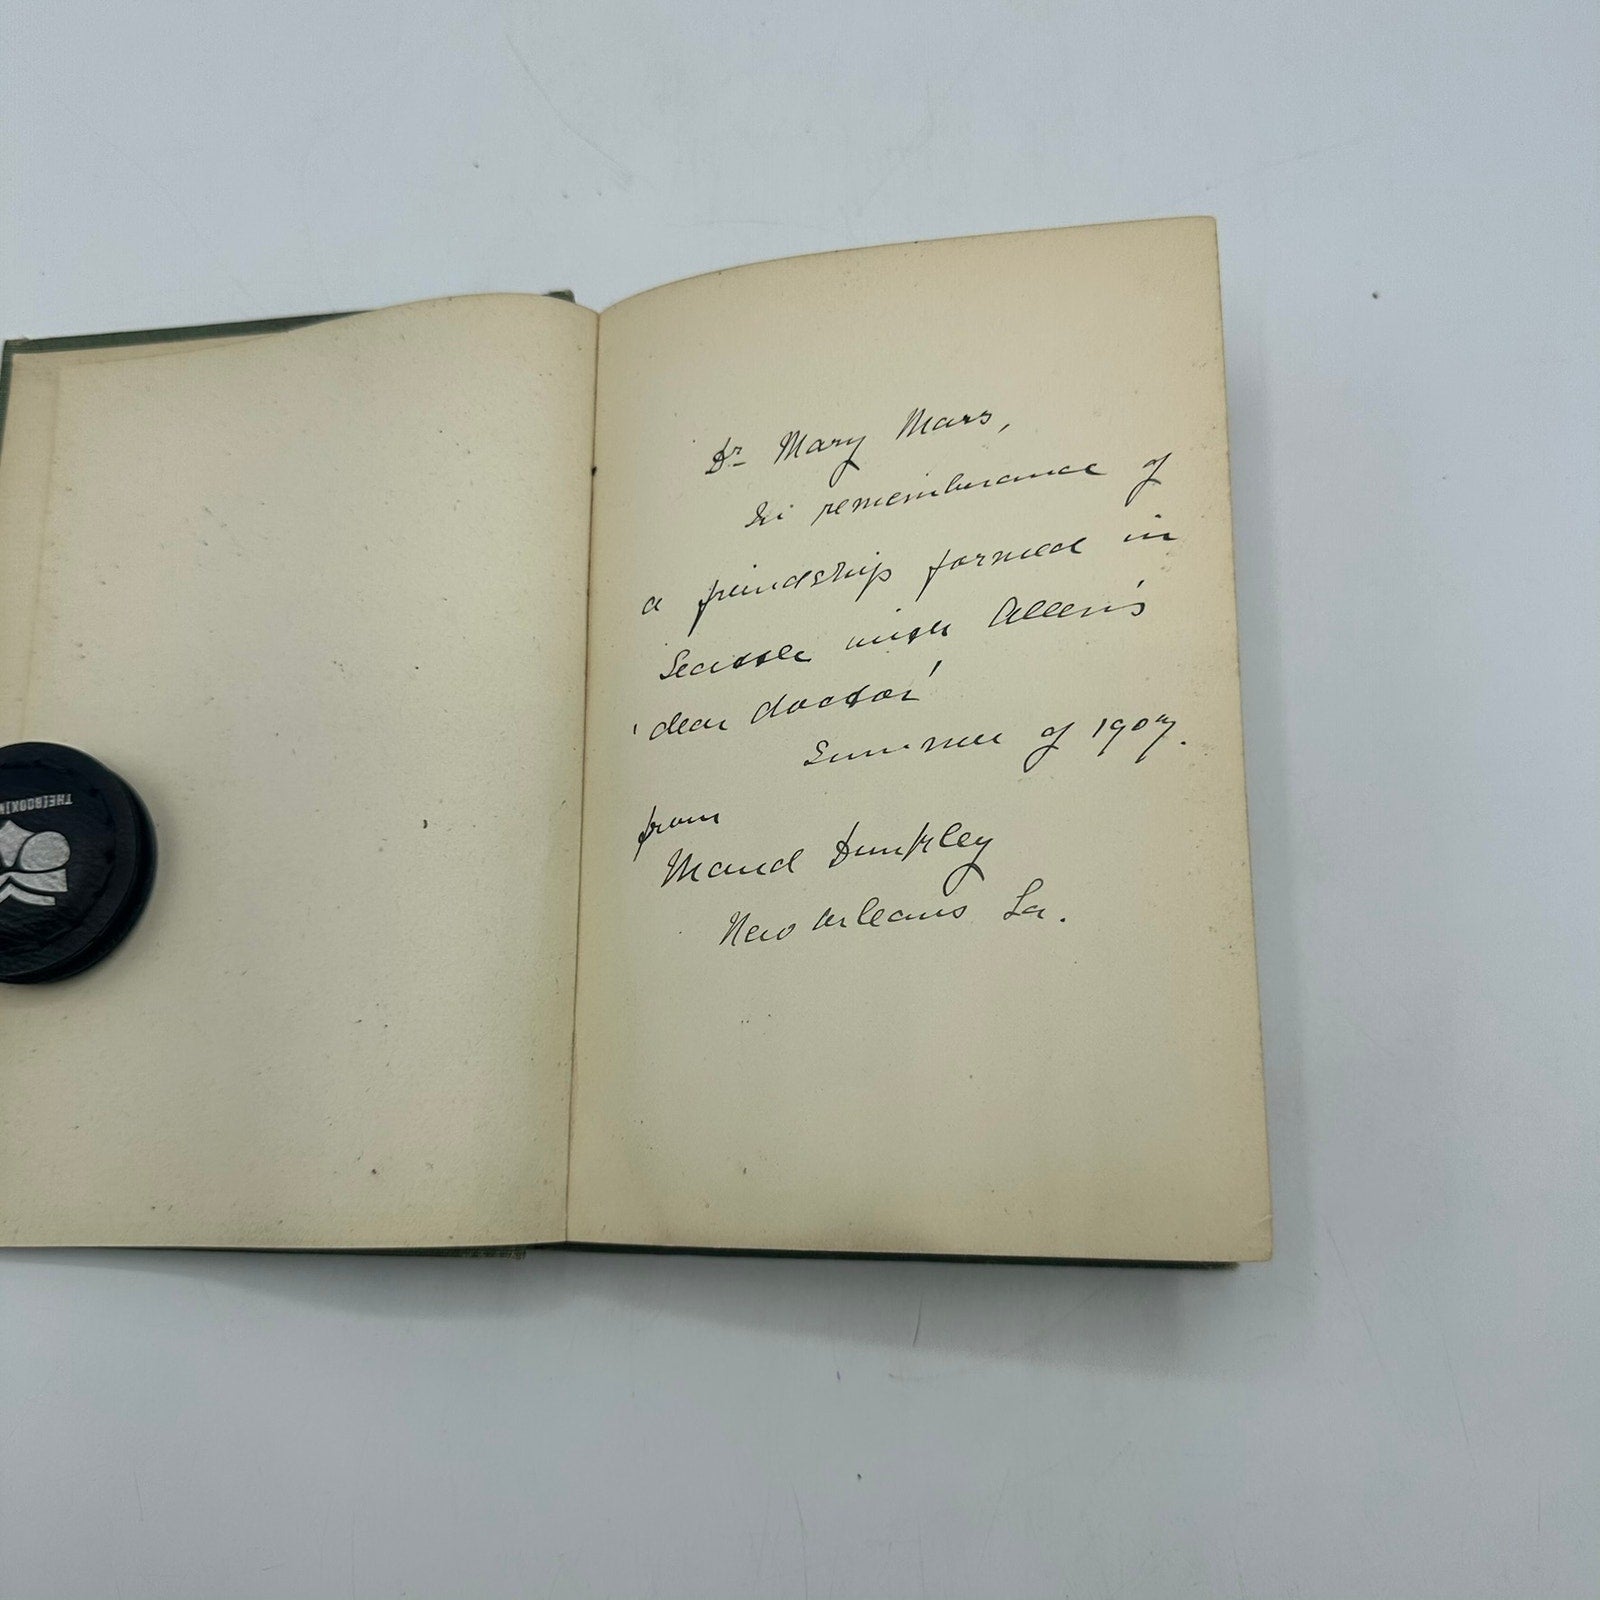 Dr Mary Mars,
In remembrance of
a friendship formed in
Seattle with Alleen's
'dear doctor'
Summer of 1907.
from
Maud Dunkley
New Orleans La.
THE[BOOK]IN